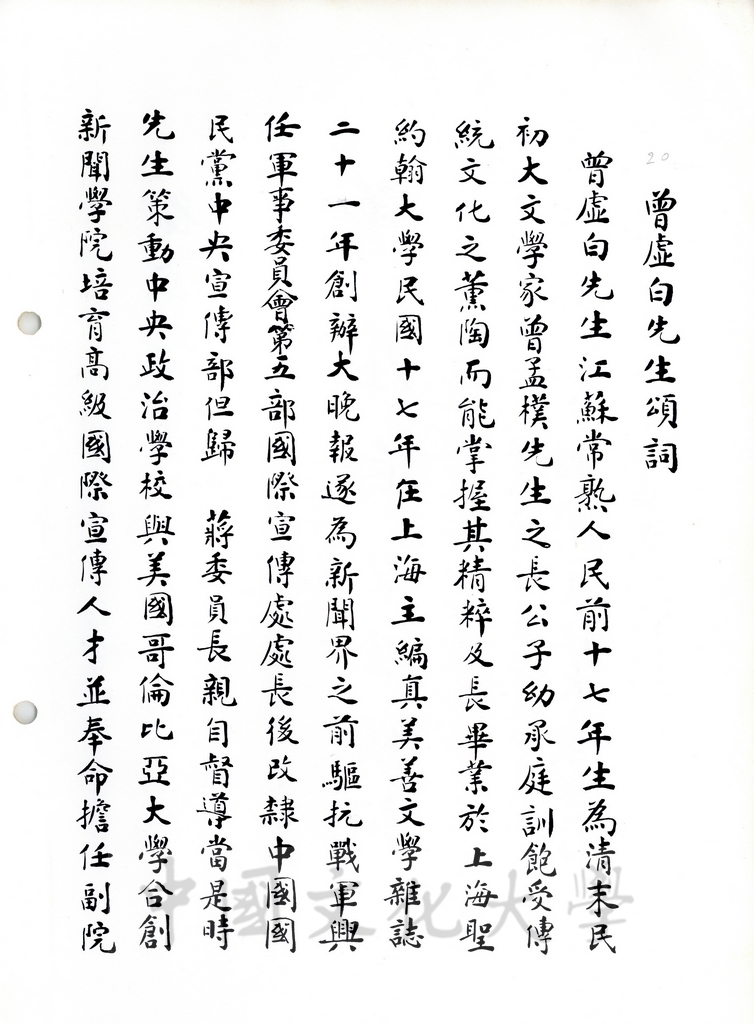 20
曾虛白先生頌詞
曾虛白先生江蘇常熟人民前十七年生為清末民
初大文學家曾孟樸先生之長公子幼承庭訓飽受傳
統文化之薰陶而能掌握其精粹及長畢業於上海聖
約翰大學民國十七年在上海主編真美善文學雜誌
二十一年創辦大晚報遂為新聞界之前驅抗戰軍興
任軍事委員會第五部國際宣傳處處長後改隸中國國
民黨中央宣傳部但歸　蔣委員長親自督導當是時
先生策動中央政治學校與美國哥倫比亞大學合創
新聞學院培育高級國際宣傳人才並奉命擔任副院
中國文化大學